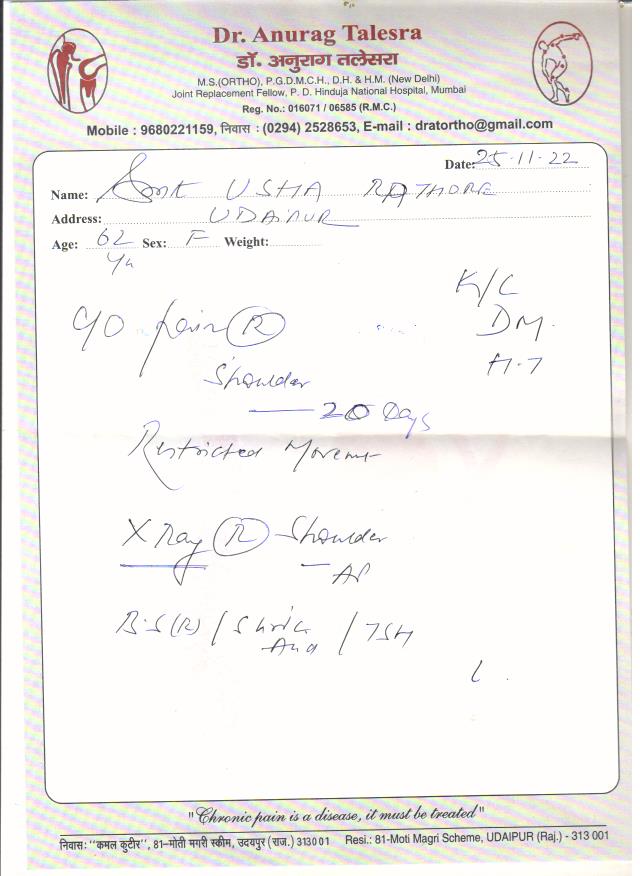 Dr. Anurag Talesra
डॉ. अनुराग तलेसरा
M.S.(ORTHO), P.G.D.M.C.H., D.H. & H.M. (New Delhi)
Joint Replacement Fellow, P. D. Hinduja National Hospital, Mumbai
Reg. No.: 016071 / 06585 (R.M.C.)
Mobile : 9680221159, निवास : (0294) 2528653, E-mail : dratortho@gmail.com
Date: 25.11.22
Name: Smt USHA RATHORE
Address: UDAIPUR
Age: 62 Yr Sex: F Weight:
K/C
DM
H.T
C/O pain (R)
Shoulder
— 20 Days
Restricted Movement
X Ray (R) Shoulder
— AP
B.S(R) / S. Uric Acid / TSH
"Chronic pain is a disease, it must be treated"
निवास: "कमल कुटीर", 81–मोती मगरी स्कीम, उदयपुर (राज.) 313001 Resi.: 81-Moti Magri Scheme, UDAIPUR (Raj.) - 313 001